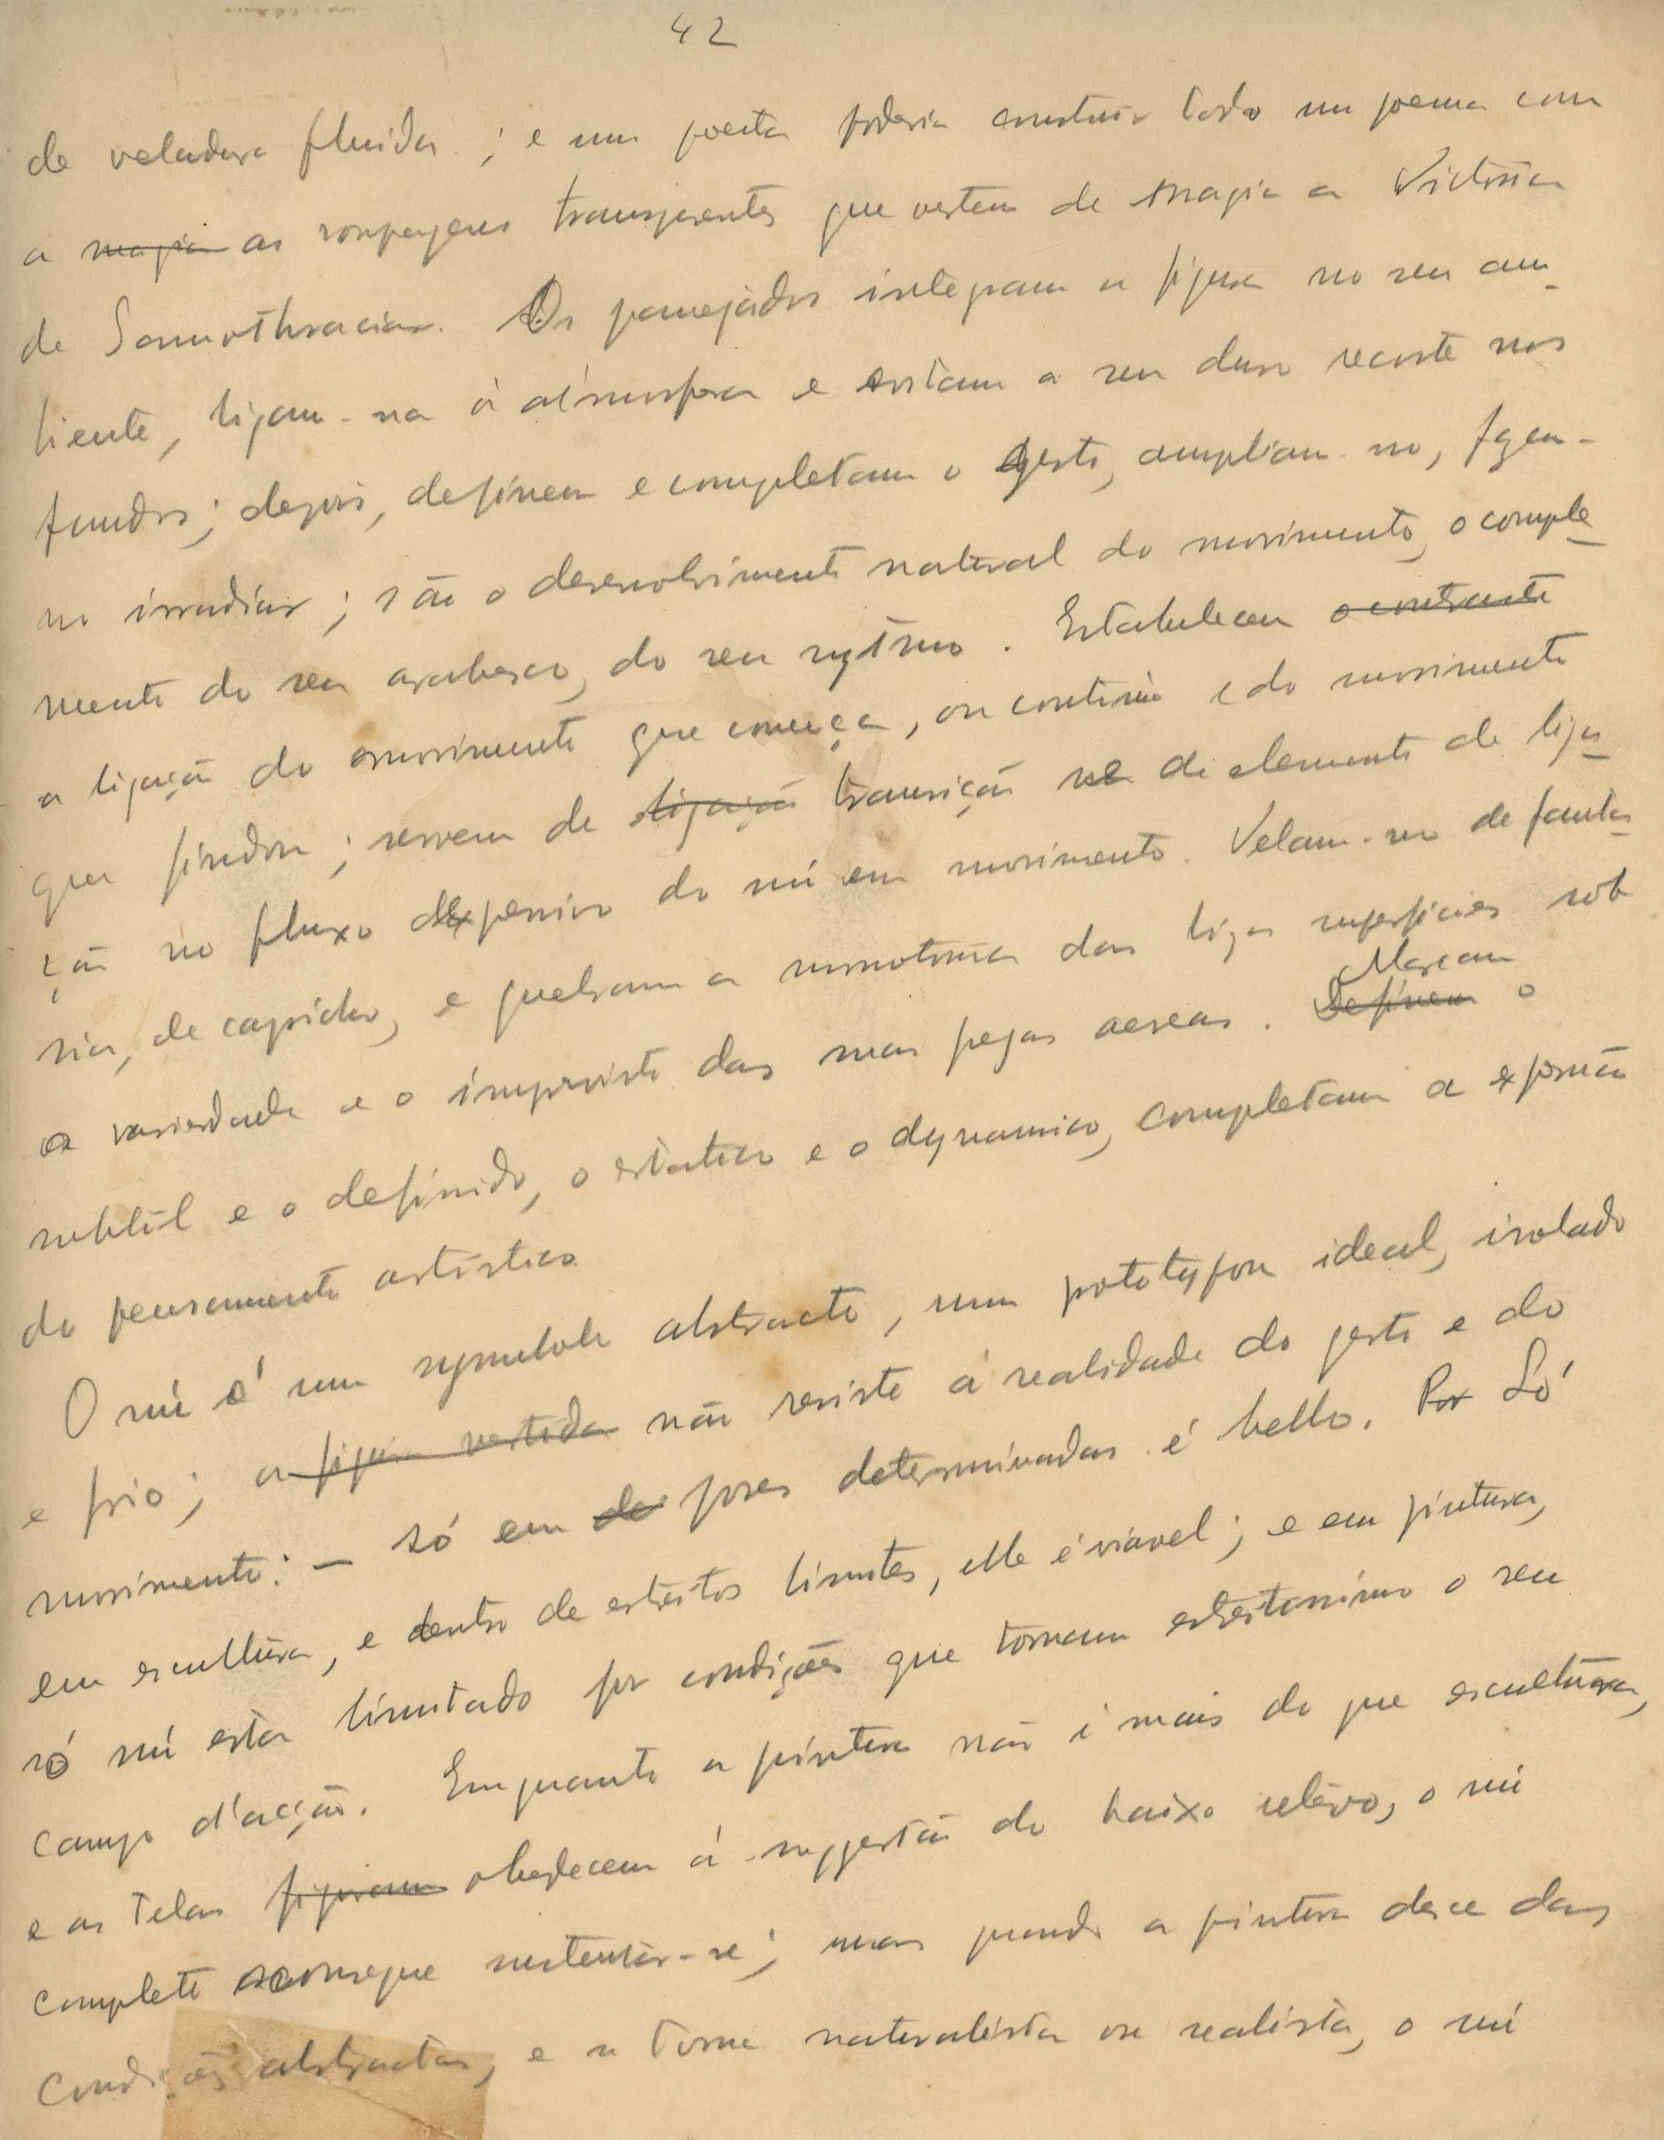 42
de veladura fluida ; e um poeta poderia construir todo um poema com
a ~~magia~~ as roupagens transparentes que vestem de magia a Victória
de Samothracia. Os panejádos integram a figura no seu am-
biente, ligam-na á atmosfera e evitam o seu duro recorte nos
fundos; depois, definem e completam o gesto, ampliam-no, fazem-
no irradiar; são o desenvolvimento natural do movimento, o comple-
mento do seu arabesco, do seu rytmo. Estabelecem ~~o contraste~~
a ligação do movimento que começa, ou continúa e do movimento
que findou; servem de ~~ligação~~ transição de elemento de liga-
ção no fluxo expressivo do nú em movimento. Velam-no de fanta-
sia, de capricho, e quebram a monotonia das lizas superficies sob
a variedade e o imprevisto das suas pregas aereas. ~~Definem~~ Marcam o
subtil e o definido, o estatico e o dynamico, completam a expressão
do pensamento artistico.
O nú é um symbolo abstracto, um prototypon ideal, isolado
e frio; a ~~figura vestida~~ não resiste á realidade do gesto e do
movimento: – só em ~~de~~ poses determinadas é bello. Só
em escultura, e dentro de estreitos limites, elle é viavel; e em pintura,
só nú está limitado por condições que tornam estreitissimo o seu
campo d'acção. Emquanto a pintura não é mais do que escultura,
e as telas ~~figuram~~ obedecem á suggestão do baixo relêvo, o nú
completo consegue sustentar-se; mas quando a pintura desce das
condições abstractas, e se torna naturalista ou realista, o nú